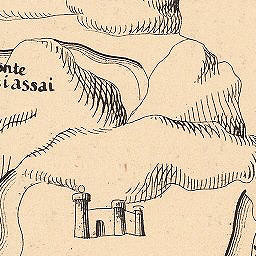 onte
iassai